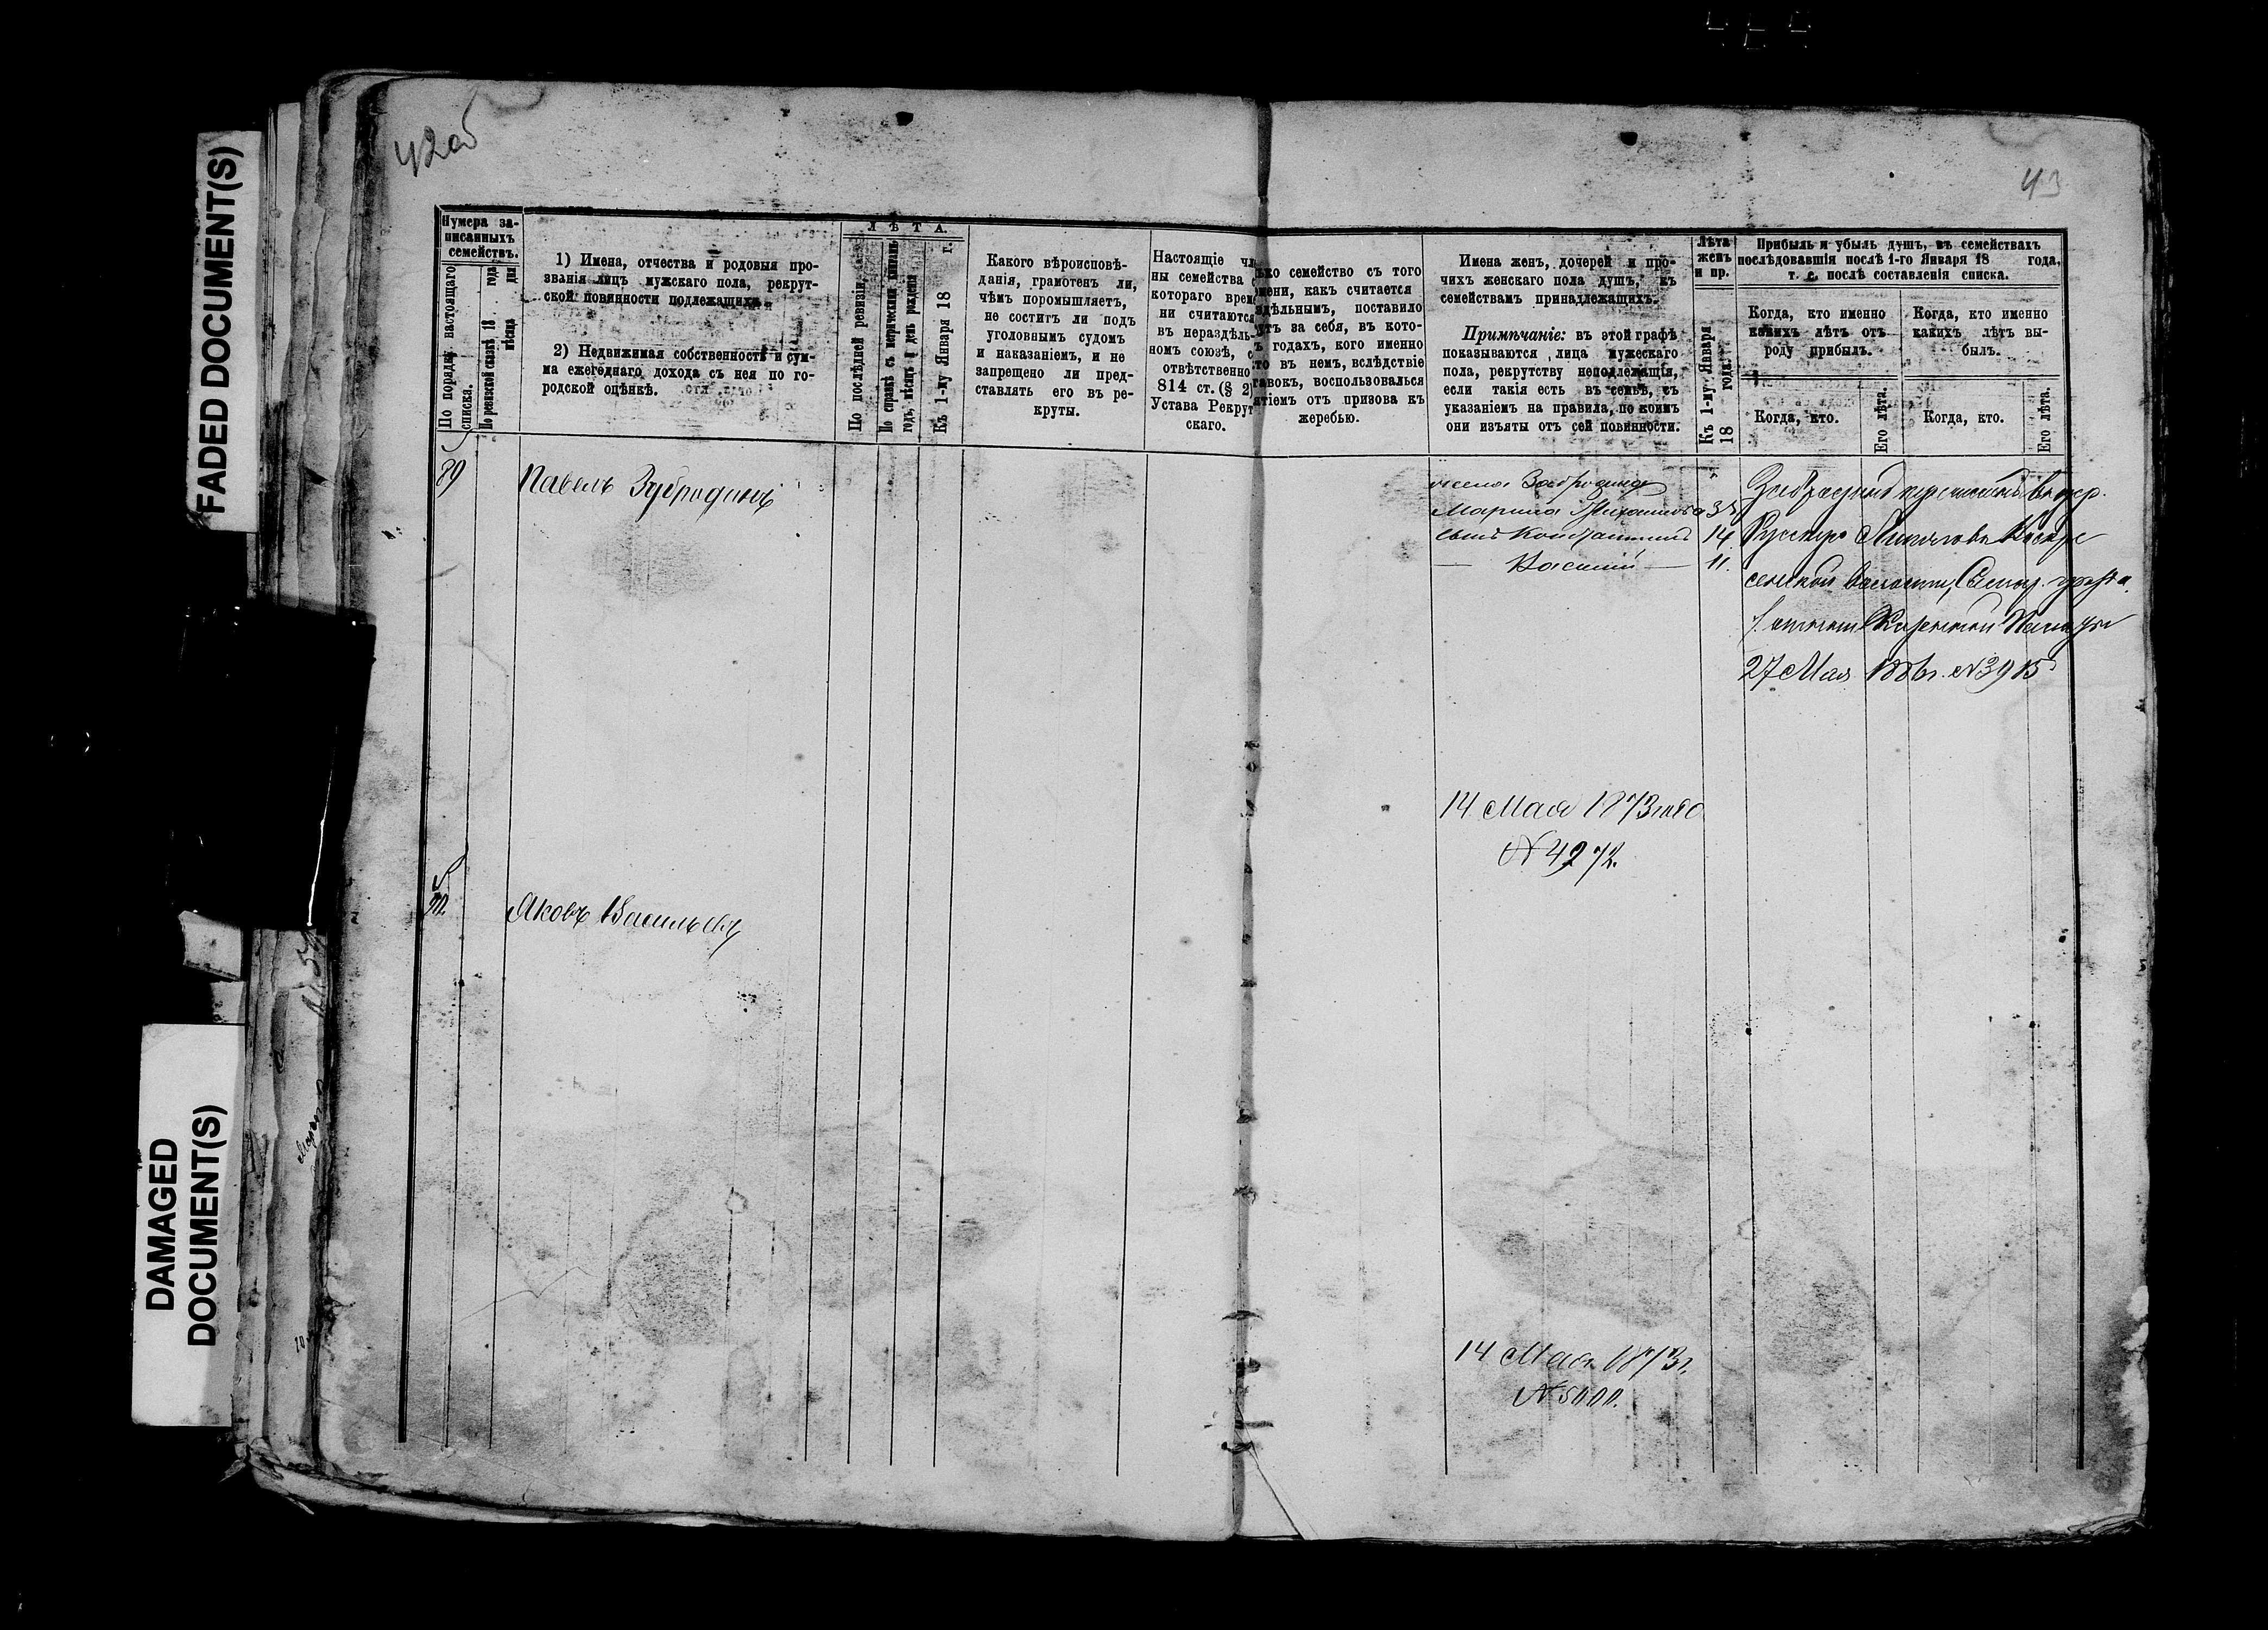 FADED DOCUMENT(S)
DAMAGED
DOCUMENT(S)
42об
43
Нумера за-
писанныхъ
семействъ.
По порядку настоящаго
списка.
По ревизской сказкѣ 18 года
мѣсяца дня
1) Имена, отчества и родовыя про-
званія лицъ мужскаго пола, рекрут-
ской повинности подлежащихъ.
2) Недвижимая собственность и сум-
ма ежегоднаго дохода съ нея по го-
родской оцѣнкѣ.
ЛѢТА.
По послѣдней ревизіи.
По справкѣ съ метрическими книгами
годъ, мѣсяцъ и день рожденія
Къ 1-му Января 18 г.
Какого вѣроисповѣ-
данія, грамотенъ ли,
чѣмъ поромышляетъ,
не соститъ ли подъ
уголовнымъ судомъ
и наказаніемъ, и не
запрещено ли пред-
ставлять его въ ре-
круты.
Настоящіе чл
ны семейства с
котораго врем
ни считаются
въ нераздѣль-
номъ союзѣ, с
отвѣтственно
814 ст. (§ 2)
Устава Рекрут
скаго.
ько семейство съ того
мени, какъ считается
здѣльнымъ, поставило
утъ за себя, въ кото-
ъ годахъ, кого именно
то въ немъ, вслѣдствіе
тавокъ, воспользовалься
ятіемъ отъ призова къ
жеребью.
Имена женъ, дочерей и про-
чихъ женскаго пола душъ, къ
семействамъ принадлежащихъ.
Примѣчаніе: въ этой графѣ
показываются лица мужескаго
пола, рекрутству неподлежащія,
если такія есть въ семьѣ, съ
указаніемъ на правила, по коимъ
они изъяты отъ сей повинности.
Лѣта
женъ
и пр.
Къ 1-му Января
18 года.
Прибыль и убыль душъ, въ семействахъ
послѣдовавшія послѣ 1-го Января 18 года,
т. е. послѣ составленія списка.
Когда, кто именно
какихъ лѣтъ отъ
роду прибылъ.
Когда, кто именно
какихъ лѣтъ вы-
былъ.
Когда, кто.
Его лѣта.
Когда, кто.
Его лѣта.
89
Павелъ
Марина 35
сынъ Константинъ 14
— Василій — 11.
27 Мая 1886г. №3915
14 Мая 1873 года
№ 4272.
90.
Яковъ Васильевъ
14 Мая 1873г.
№ 5000.